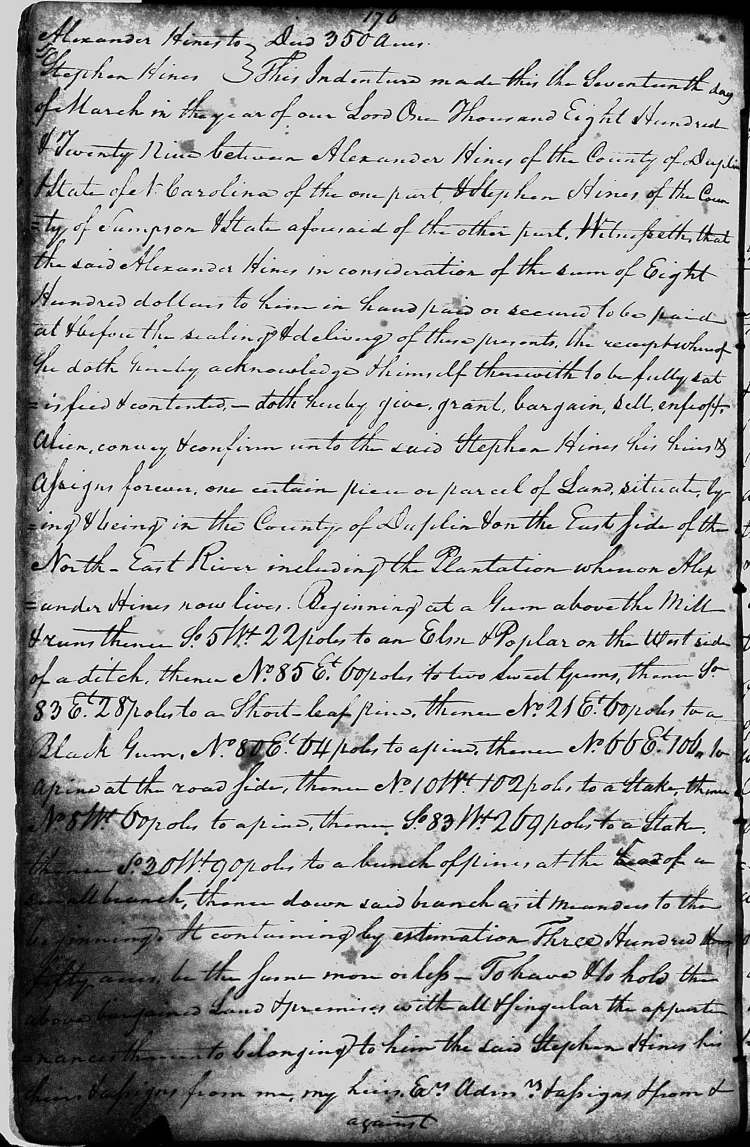 176
Alexander Hines to } Deed 350 Acres.
Stephen Hines } This Indenture made this the Seventeenth day
of March in the year of our Lord One Thousand Eight Hundred
& Twenty Nine between Alexander Hines of the County of Duplin
& State of N. Carolina of the one part & Stephen Hines of the Coun
=ty of Sampson & State aforesaid of the other part, Witnesseth, that
the said Alexander Hines in consideration of the sum of Eight
Hundred dollars to him in hand paid or secured to be paid
at & before the sealing & delivery of these presents, the receipt whereof
he doth hereby acknowledge & himself therewith to be fully sat
=isfied & contented, – doth hereby give, grant, bargain, sell, enfeoff,
Alien, convey & confirm unto the said Stephen Hines his heirs &
Assigns forever, one certain piece or parcel of Land, situate, ly
=ing & being in the County of Duplin & on the East side of the
North-East River including the Plantation whereon Alex
=ander Hines now lives. Beginning at a Gum above the Mill
& runs thence So. 5 Wt. 22 poles to an Elm & Poplar on the West side
of a ditch, thence No. 85 Et. 60 poles to two Sweet Gums, thence So
83 Et. 28 poles to a Short leaf pine, thence No. 21 Et. 60 poles to a
Black Gum, No. 80 Et. 64 poles to a pine, thence No. 66 Et. 106 to
a pine at the road side, thence No. 10 Wt. 102 poles to a Stake, thence
No. 8 Wt. 60 poles to a pine, thence So. 83 Wt. 269 poles to a Stake,
thence So. 30 Wt. 90 poles to a bunch of pines at the head of a
small branch, thence down said branch as it meanders to the
beginning. It containing by estimation Three Hundred &
fifty acres, be the same more or less – To have & to hold the
above bargained Land & premises with all & singular the appurte
=nances thereunto belonging to him the said Stephen Hines his
heirs & assigns from me, my heirs, Exrs. Admrs. & assigns & from &
against